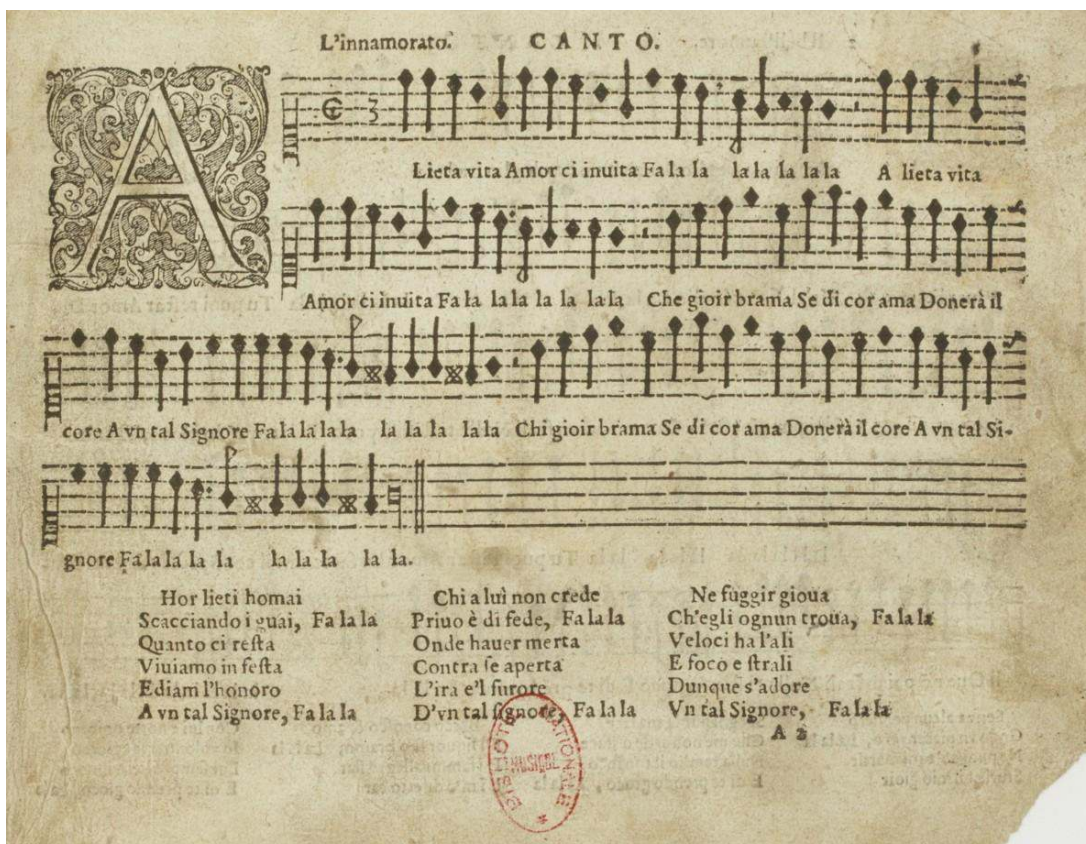 L'innamorato. CANTO.
A Lieta vita Amor ci inuita Fa la la la la la la la A lieta vita
Amor ci inuita Fa la la la la la la la Che gioir brama Se di cor ama Donerà il
core A vn tal Signore Fa la la la la la la la la la Chi gioir brama Se di cor ama Donerà il core A vn tal Si-
gnore Fa la la la la la la la la la.
Hor lieti homai
Scacciando i guai, Fa la la
Quanto ci resta
Viuiamo in festa
E diam l'honoro
A vn tal Signore, Fa la la
Chi a lui non crede
Priuo è di fede, Fa la la
Onde hauer merta
Contra se aperta
L'ira e'l furore
D'vn tal signore, Fa la la
Ne fuggir gioua
Ch'egli ognun troua, Fa la la
Veloci ha l'ali
E foco e strali
Dunque s'adore
Vn tal Signore, Fa la la
A 2
BIBLIOTE NATIONALE
MUSIQUE